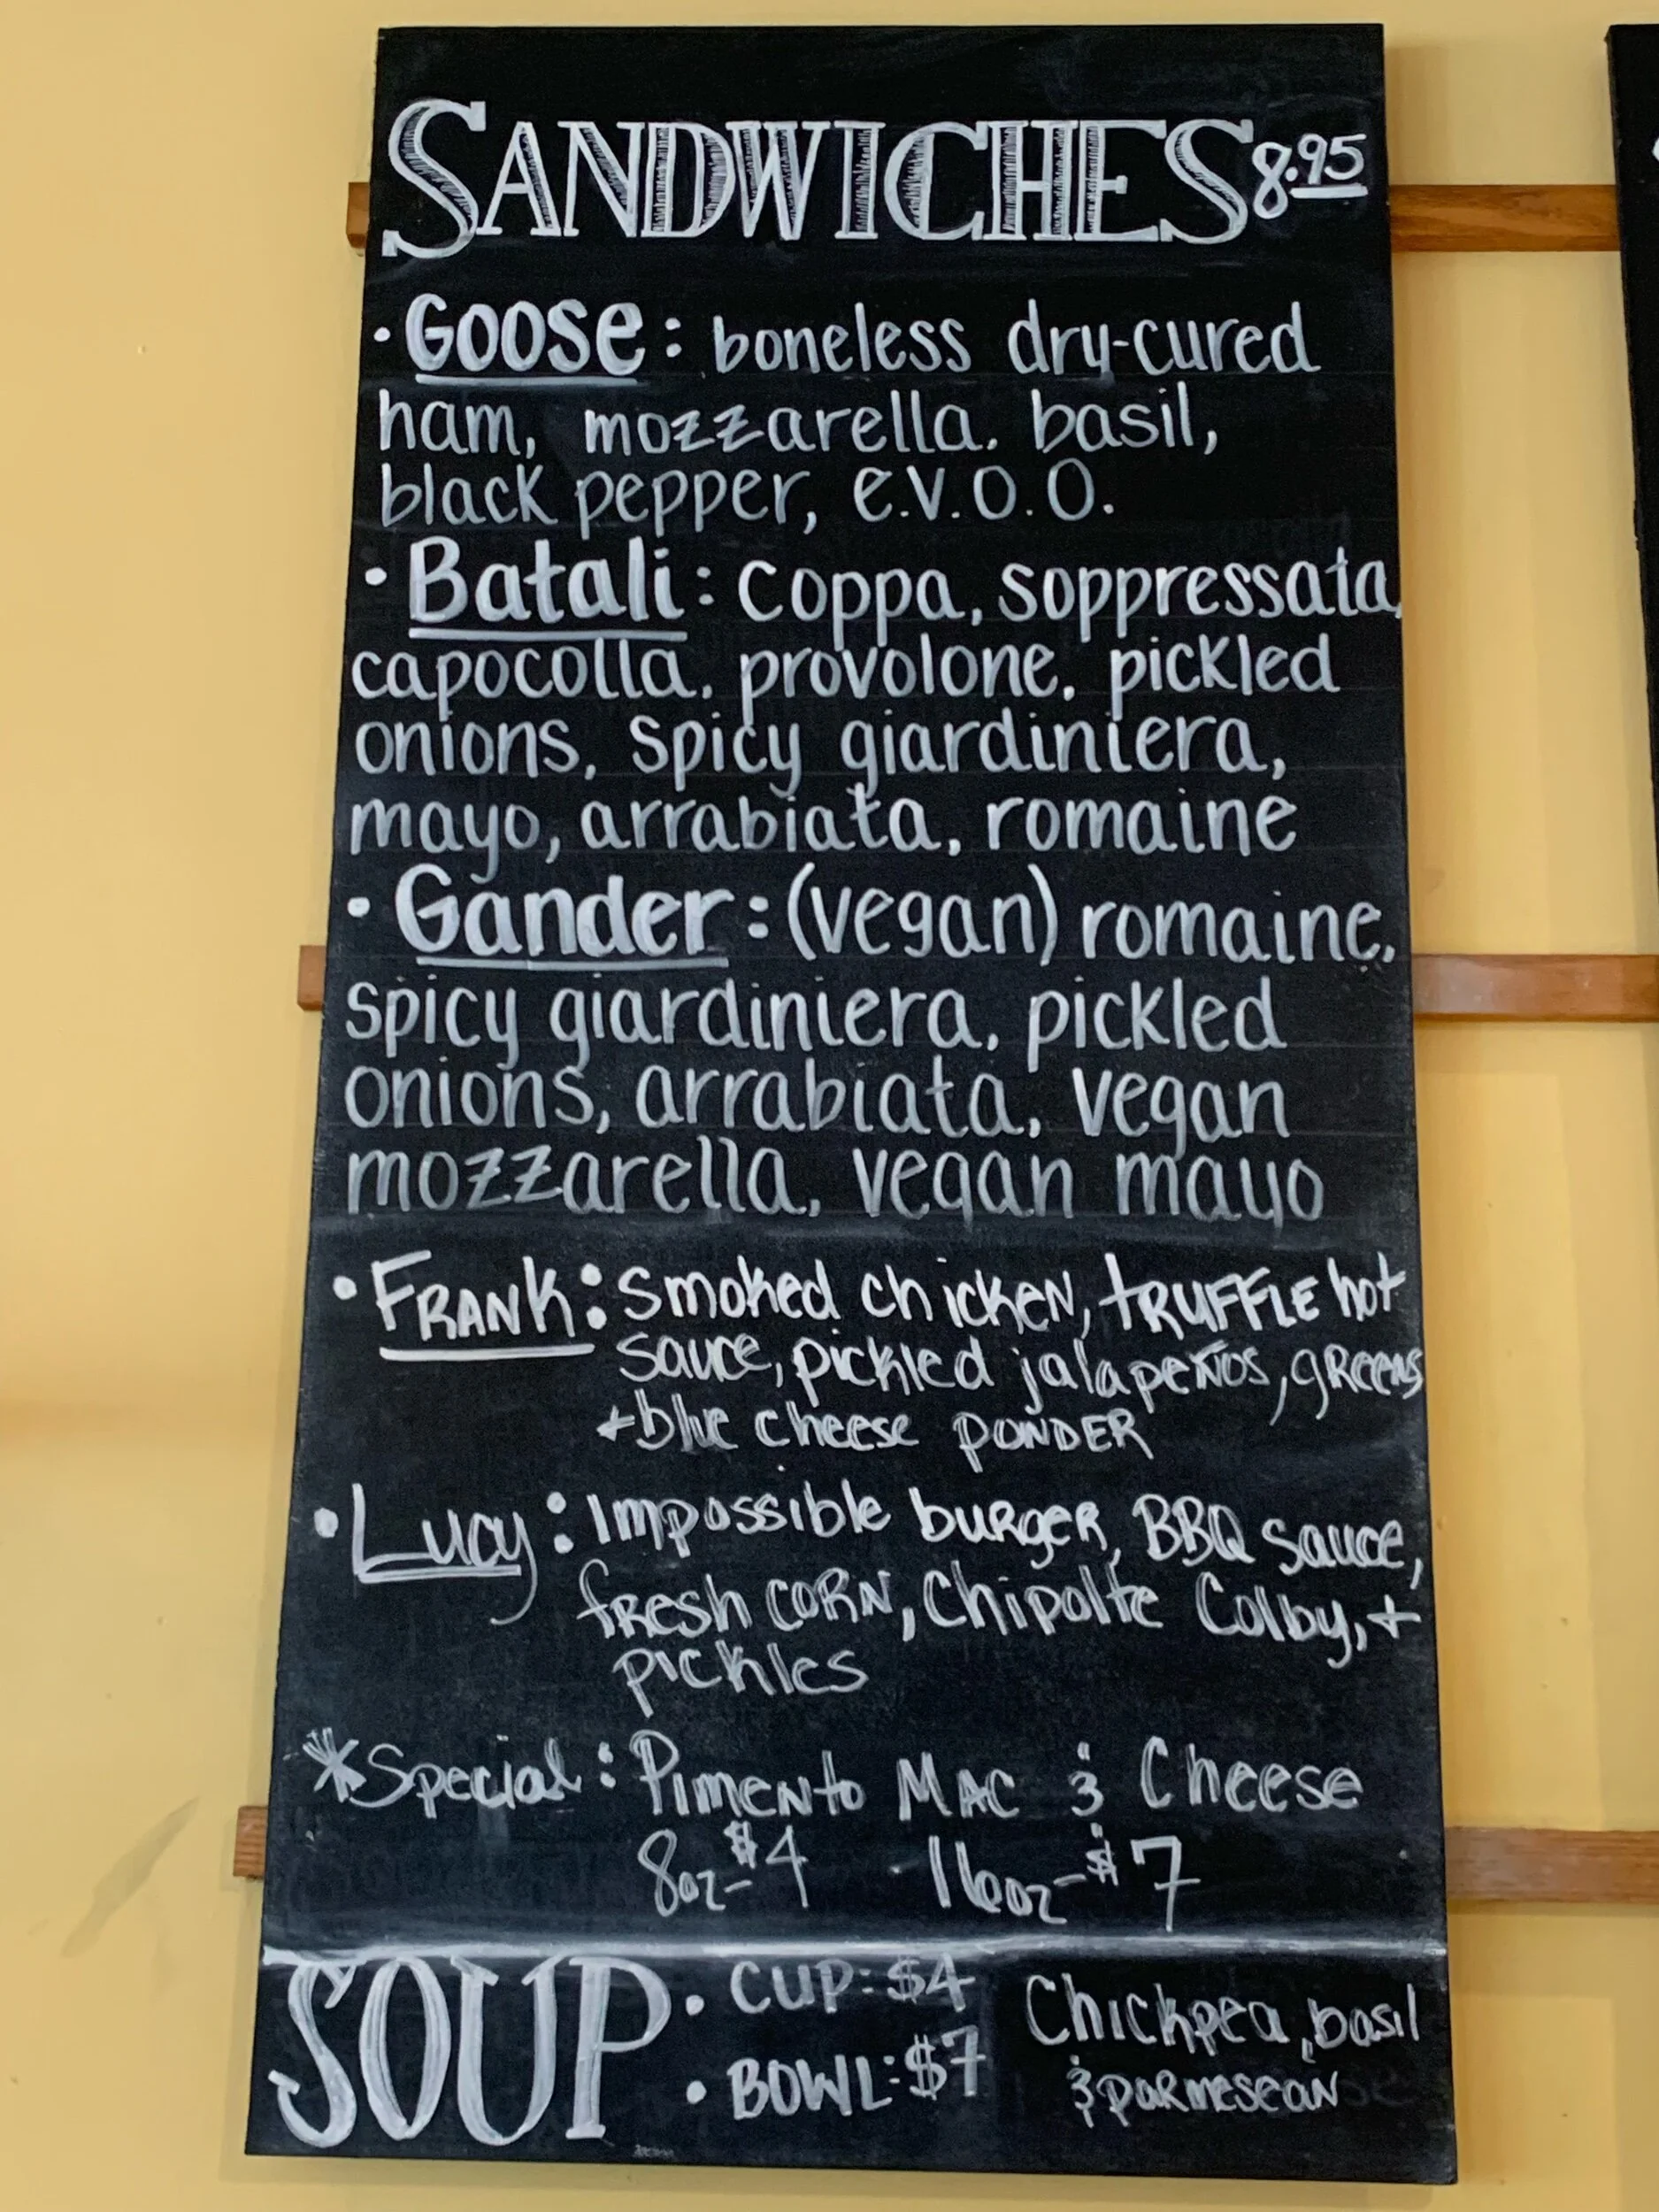 SANDWICHES 8.95
• Goose: boneless dry-cured
ham, mozzarella, basil,
black pepper, e.v.o.o.
• Batali: coppa, soppressata,
capocolla, provolone, pickled
onions, spicy giardiniera,
mayo, arrabiata, romaine
• Gander: (vegan) romaine,
spicy giardiniera, pickled
onions, arrabiata, vegan
mozzarella, vegan mayo
• FRANK: Smoked chicken, tRUFFLE hot
sauce, pickled jalapeños, gReens
+ blue cheese POWDER
• Lucy: Impossible buRgeR, BBQ sauce,
fResh CORN, Chipolte Colby, +
pickles
*Special: Pimento Mac & Cheese
8oz-$4 16oz-$7
SOUP • CUP: $4 Chickpea, basil
• BOWL: $7 & paRmesean